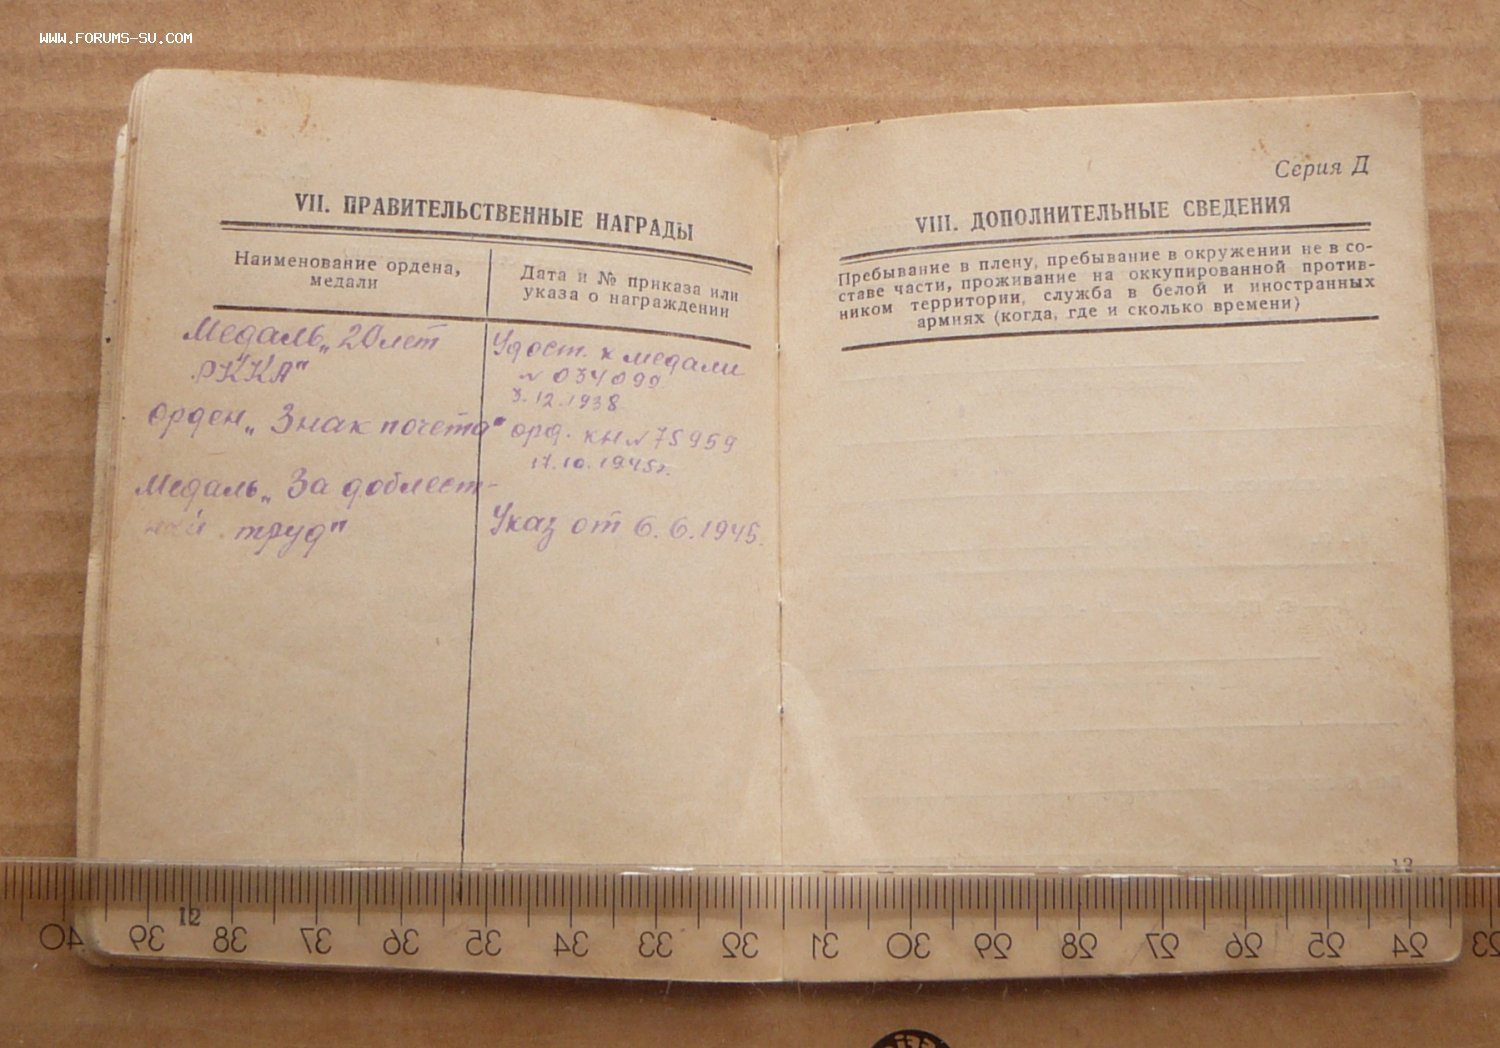 WWW.FORUMS-SU.COM
VII. ПРАВИТЕЛЬСТВЕННЫЕ НАГРАДЫ
Наименование ордена,
медали
Дата и № приказа или
указа о награждении
Медаль „20 лет
РККА"
Удост. к медали
№ 034099
3.12.1938
Орден „Знак почета"
орд. кн № 75959
17.10.1945г.
Медаль „За доблест-
ный труд"
Указ от 6.6.1945.
12
Серия Д
VIII. ДОПОЛНИТЕЛЬНЫЕ СВЕДЕНИЯ
Пребывание в плену, пребывание в окружении не в со-
ставе части, проживание на оккупированной против-
ником территории, служба в белой и иностранных
армиях (когда, где и сколько времени)
13
40 39 38 37 36 35 34 33 32 31 30 29 28 27 26 25 24 23